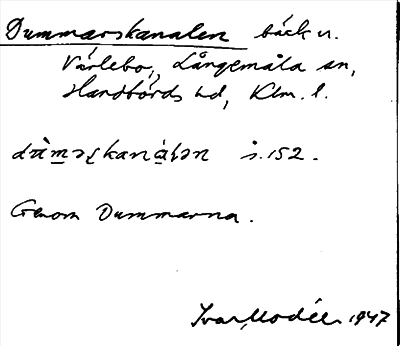 Dummarskanalen bäck n.
Värlebo, Långemåla sn,
Handbörds hd, Klm. l.
s. 152.
Genom Dummarna.
Ivar Modéer 1947